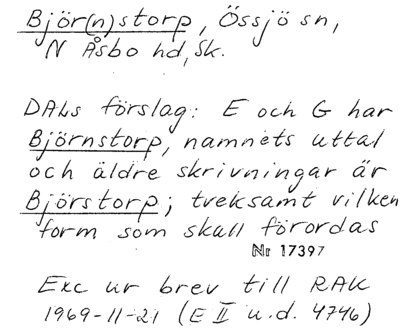 Björ(n)storp, Össjö sn,
N Åsbo hd, Sk.
DALs förslag: E och G har
Björnstorp, namnets uttal
och äldre skrivningar är
Björstorp; tveksamt vilken
form som skall förordas
Nr 17397
Exc ur brev till RAK
1969-11-21 (E II u.d. 4746)